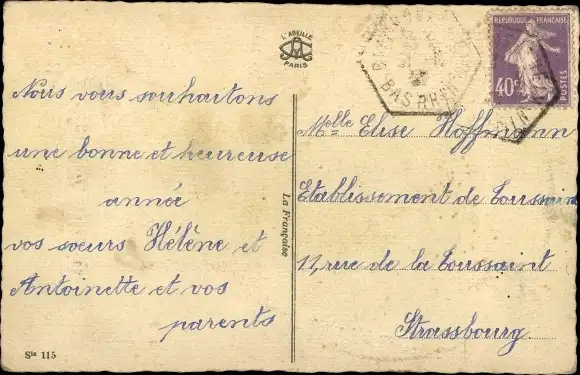 L'ABEILLE
PARIS
Nous vous souhaitons
une bonne et heureuse
année
vos sœurs Hélène et
Antoinette et vos
parents
Sie 115
La Française
BAS RHIN
REPUBLIQUE FRANÇAISE
40c
POSTES
Melle Elise Hoffmann
Etablissement de Toussaint
11, rue de la Toussaint
Strassbourg.